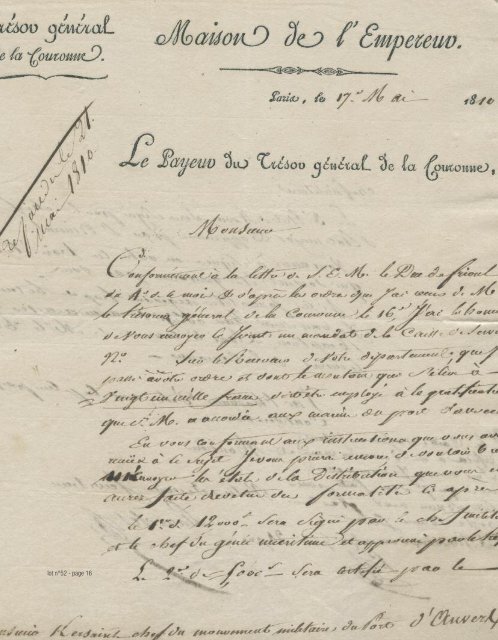 Trésor général
de la Couronne.
Maison de l'Empereur.
Paris, le 17 Mai 1810
Répondu le 21
Mai 1810
Le Payeur du Trésor général de la Couronne,
Monsieur
Conformément à la lettre de S. E. M. le Duc de frioul
du 4 de ce mois & d'après les ordres que j'ai reçus de M
le trésorier général de la Couronne le 16 j'ai l'honn
de vous envoyer ci joint un mandat de la Caisse de servi
N°. sur le Receveur de votre département, que j'
passe à votre ordre et dont le montant qui s'élève à
Vingt un mille francs doit être employé à la gratification
que S. M. a accordée aux marins du port d'anvers
En vous conformant aux instructions que vous avez
à le sujet je vous prierai de vouloir
l'état de la Distribution que vous en
aurez faite revêtu des formalités ci après
le 1er de 12000 sera signé par le chef milit
et le chef du génie maritime et approuvé par le
Le 2e de sera certifié par le
lot n°52 - page 16
Kersaint chef du mouvement militaire du Port d'Anvers